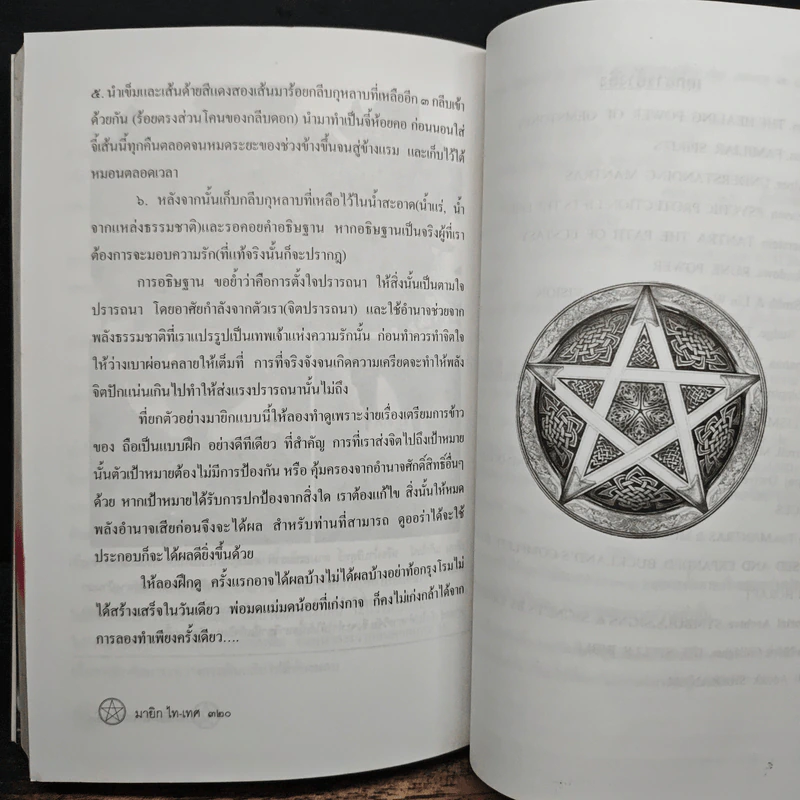 ๕. นำเข็มและเส้นด้ายสีแดงสองเส้นมาร้อยกลีบกุหลาบที่เหลืออีก ๓ กลีบเข้า
ด้วยกัน (ร้อยตรงส่วนโคนของกลีบดอก) นำมาทำเป็นจี้ห้อยคอ ก่อนนอนใส่
จี้เส้นนี้ทุกคืนตลอดจนหมดระยะของช่วงข้างขึ้นจนสู่ข้างแรม และเก็บไว้ใต้
หมอนตลอดเวลา
๖. หลังจากนั้นเก็บกลีบกุหลาบที่เหลือไว้ในน้ำสะอาด(น้ำแร่, น้ำ
จากแหล่งธรรมชาติ)และรอคอยคำอธิษฐาน หากอธิษฐานเป็นจริงผู้ที่เรา
ต้องการจะมอบความรัก(ที่แท้จริงนั้นก็จะปรากฎ)
การอธิษฐาน ขอย้ำว่าคือการตั้งใจปรารถนา ให้สิ่งนั้นเป็นตามใจ
ปรารถนา โดยอาศัยกำลังจากตัวเรา(จิตปรารถนา) และใช้อำนาจช่วยจาก
พลังธรรมชาติที่เราแปรรูปเป็นเทพเจ้าแห่งความรักนั้น ก่อนทำควรทำจิตใจ
ให้ว่างเบาผ่อนคลายให้เต็มที่ การที่จริงจังจนเกิดความเครียดจะทำให้พลัง
จิตปักแน่นเกินไปทำให้ส่งแรงปรารถนานั้นไม่ถึง
ที่ยกตัวอย่างมายิกแบบนี้ให้ลองทำดูเพราะง่ายเรื่องเตรียมการข้าว
ของ ถือเป็นแบบฝึก อย่างดีทีเดียว ที่สำคัญ การที่เราส่งจิตไปถึงเป้าหมาย
นั้นตัวเป้าหมายต้องไม่มีการป้องกัน หรือ คุ้มครองจากอำนาจศักดิ์สิทธิ์อื่นๆ
ด้วย หากเป้าหมายได้รับการปกป้องจากสิ่งใด เราต้องแก้ไข สิ่งนั้นให้หมด
พลังอำนาจเสียก่อนจึงจะได้ผล สำหรับท่านที่สามารถ ดูออร่าได้จะใช้
ประกอบก็จะได้ผลดียิ่งขึ้นด้วย
ให้ลองฝึกดู ครั้งแรกอาจได้ผลบ้างไม่ได้ผลบ้างอย่าท้อกรุงโรมไม่
ได้สร้างเสร็จในวันเดียว พ่อมดแม่มดน้อยที่เก่งกาจ ก็คงไม่เก่งกล้าได้จาก
การลองทำเพียงครั้งเดียว....
มายิก ไท-เทศ ๓๒๐